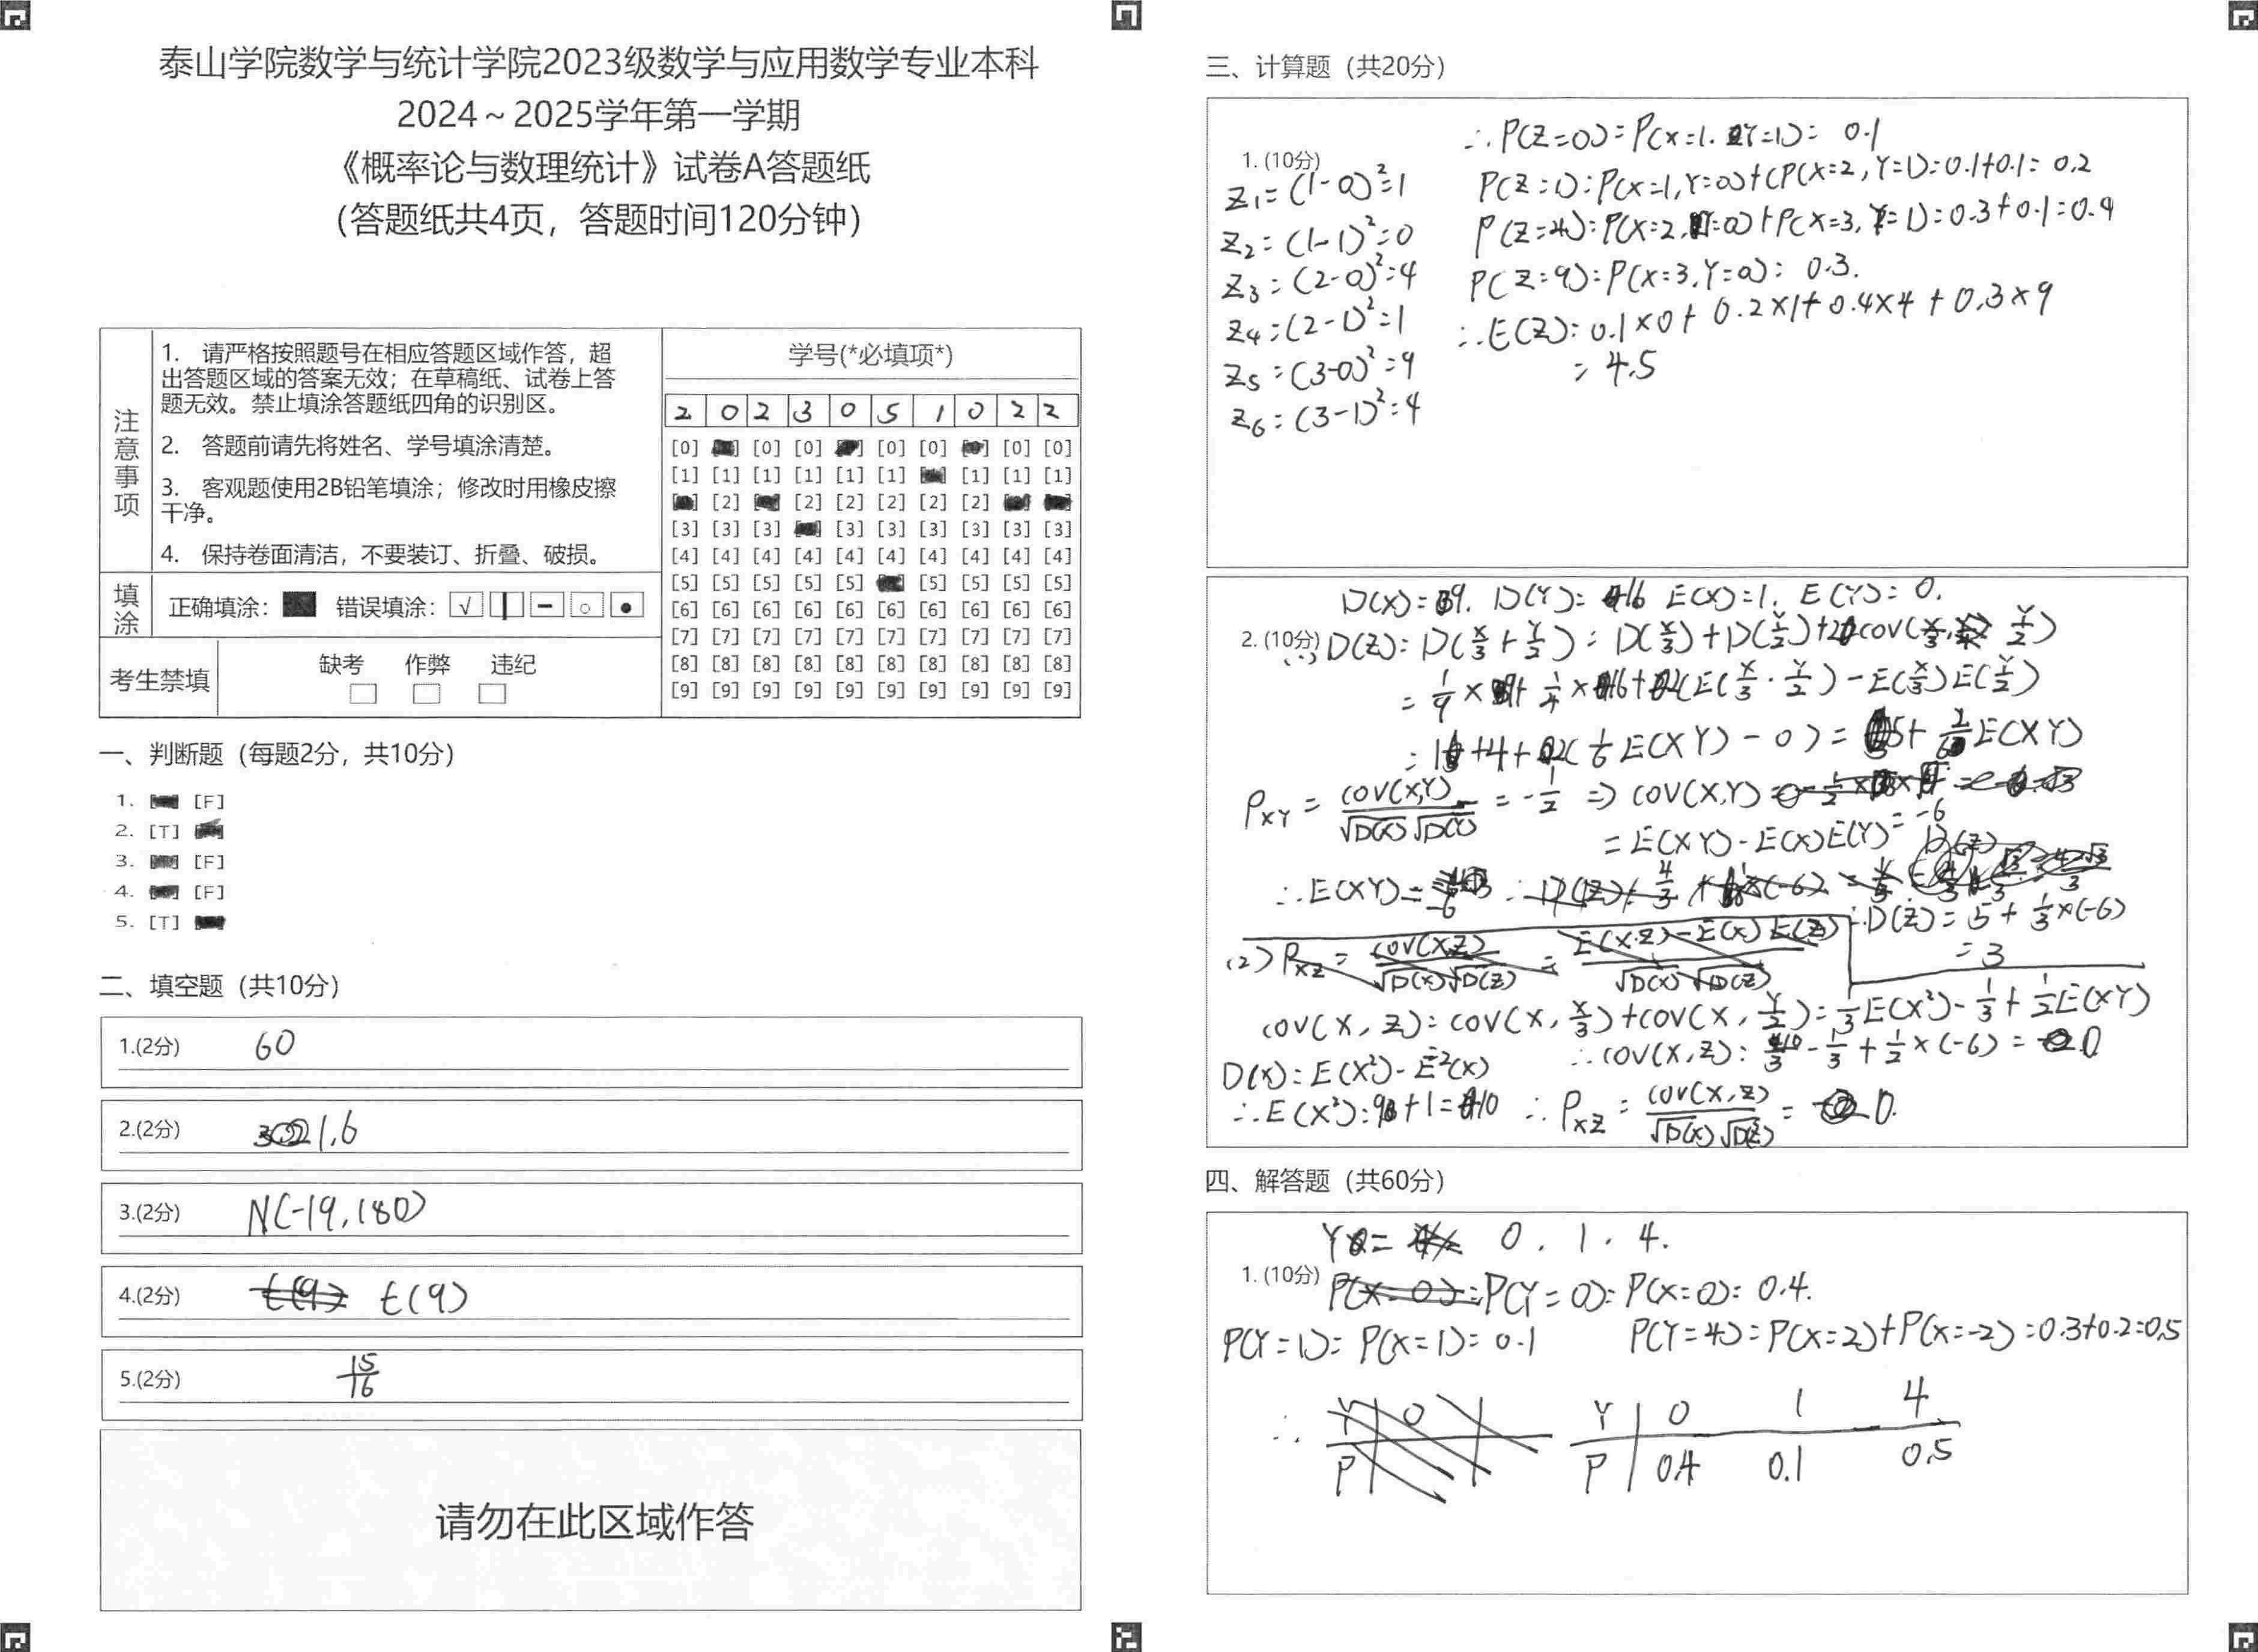 泰山学院数学与统计学院2023级数学与应用数学专业本科
2024～2025学年第一学期
《概率论与数理统计》试卷A答题纸
（答题纸共4页，答题时间120分钟）
注意事项
1. 请严格按照题号在相应答题区域作答，超
出答题区域的答案无效；在草稿纸、试卷上答
题无效。禁止填涂答题纸四角的识别区。
2. 答题前请先将姓名、学号填涂清楚。
3. 客观题使用2B铅笔填涂；修改时用橡皮擦
干净。
4. 保持卷面清洁，不要装订、折叠、破损。
填涂
正确填涂： 错误填涂：
考生禁填
缺考 作弊 违纪
学号(*必填项*)
2 0 2 3 0 5 1 0 2 2
[0] [0] [0] [0] [0] [0] [0]
[1] [1] [1] [1] [1] [1] [1] [1] [1]
[2] [2] [2] [2] [2] [2]
[3] [3] [3] [3] [3] [3] [3] [3] [3]
[4] [4] [4] [4] [4] [4] [4] [4] [4] [4]
[5] [5] [5] [5] [5] [5] [5] [5] [5]
[6] [6] [6] [6] [6] [6] [6] [6] [6] [6]
[7] [7] [7] [7] [7] [7] [7] [7] [7] [7]
[8] [8] [8] [8] [8] [8] [8] [8] [8] [8]
[9] [9] [9] [9] [9] [9] [9] [9] [9] [9]
一、判断题（每题2分，共10分）
1. [F]
2. [T]
3. [F]
4. [F]
5. [T]
二、填空题（共10分）
1.(2分) 60
2.(2分) 1.6
3.(2分) N(-19,180)
4.(2分) t(9)
5.(2分) 15/16
请勿在此区域作答
三、计算题（共20分）
1. (10分)
Z₁=(1-0)²=1
Z₂=(1-1)²=0
Z₃=(2-0)²=4
Z₄=(2-1)²=1
Z₅=(3-0)²=9
Z₆=(3-1)²=4
∴P(Z=0)=P(X=1. Y=1)= 0.1
P(Z=1)=P(X=1,Y=0)+(P(X=2,Y=1)=0.1+0.1= 0.2
P(Z=4)=P(X=2,Y=0)+P(X=3,Y=1)=0.3+0.1=0.4
P(Z=9)=P(X=3,Y=0)= 0.3.
∴E(Z)=0.1×0+ 0.2×1+0.4×4+0.3×9
= 4.5
D(X)=9. D(Y)=16 E(X)=1. E(Y)=0.
2. (10分) (1) D(Z)=D(X/3+Y/2)= D(X/3)+D(Y/2)+2cov(X/3, Y/2)
= 1/9×9+1/4×16+2(E(X/3·Y/2)-E(X/3)E(Y/2)
= 1+4+2(1/6E(XY)-0)= 5+2/6E(XY)
ρXY = cov(X,Y)/√D(X)√D(Y) = -1/2 ⇒ cov(X,Y)
= E(XY)-E(X)E(Y)=-6
∴E(XY)=-6
∴D(Z)=5+1/3×(-6)
=3
(2)
cov(X, Z)=cov(X, X/3)+cov(X, Y/2)=1/3E(X²)-1/3+1/2E(XY)
D(X)=E(X²)-E²(X)
∴cov(X,Z)=10/3-1/3+1/2×(-6)=0
∴E(X²)=9+1=10 ∴ρXZ=cov(X,Z)/√D(X)√D(Z)=0.
四、解答题（共60分）
Y= 0. 1. 4.
1. (10分) P(Y=0)=P(X=0)=0.4.
P(Y=1)=P(X=1)=0.1 P(Y=4)=P(X=2)+P(X=-2)=0.3+0.2=0.5
∴ Y 0 1 4
P 0.4 0.1 0.5